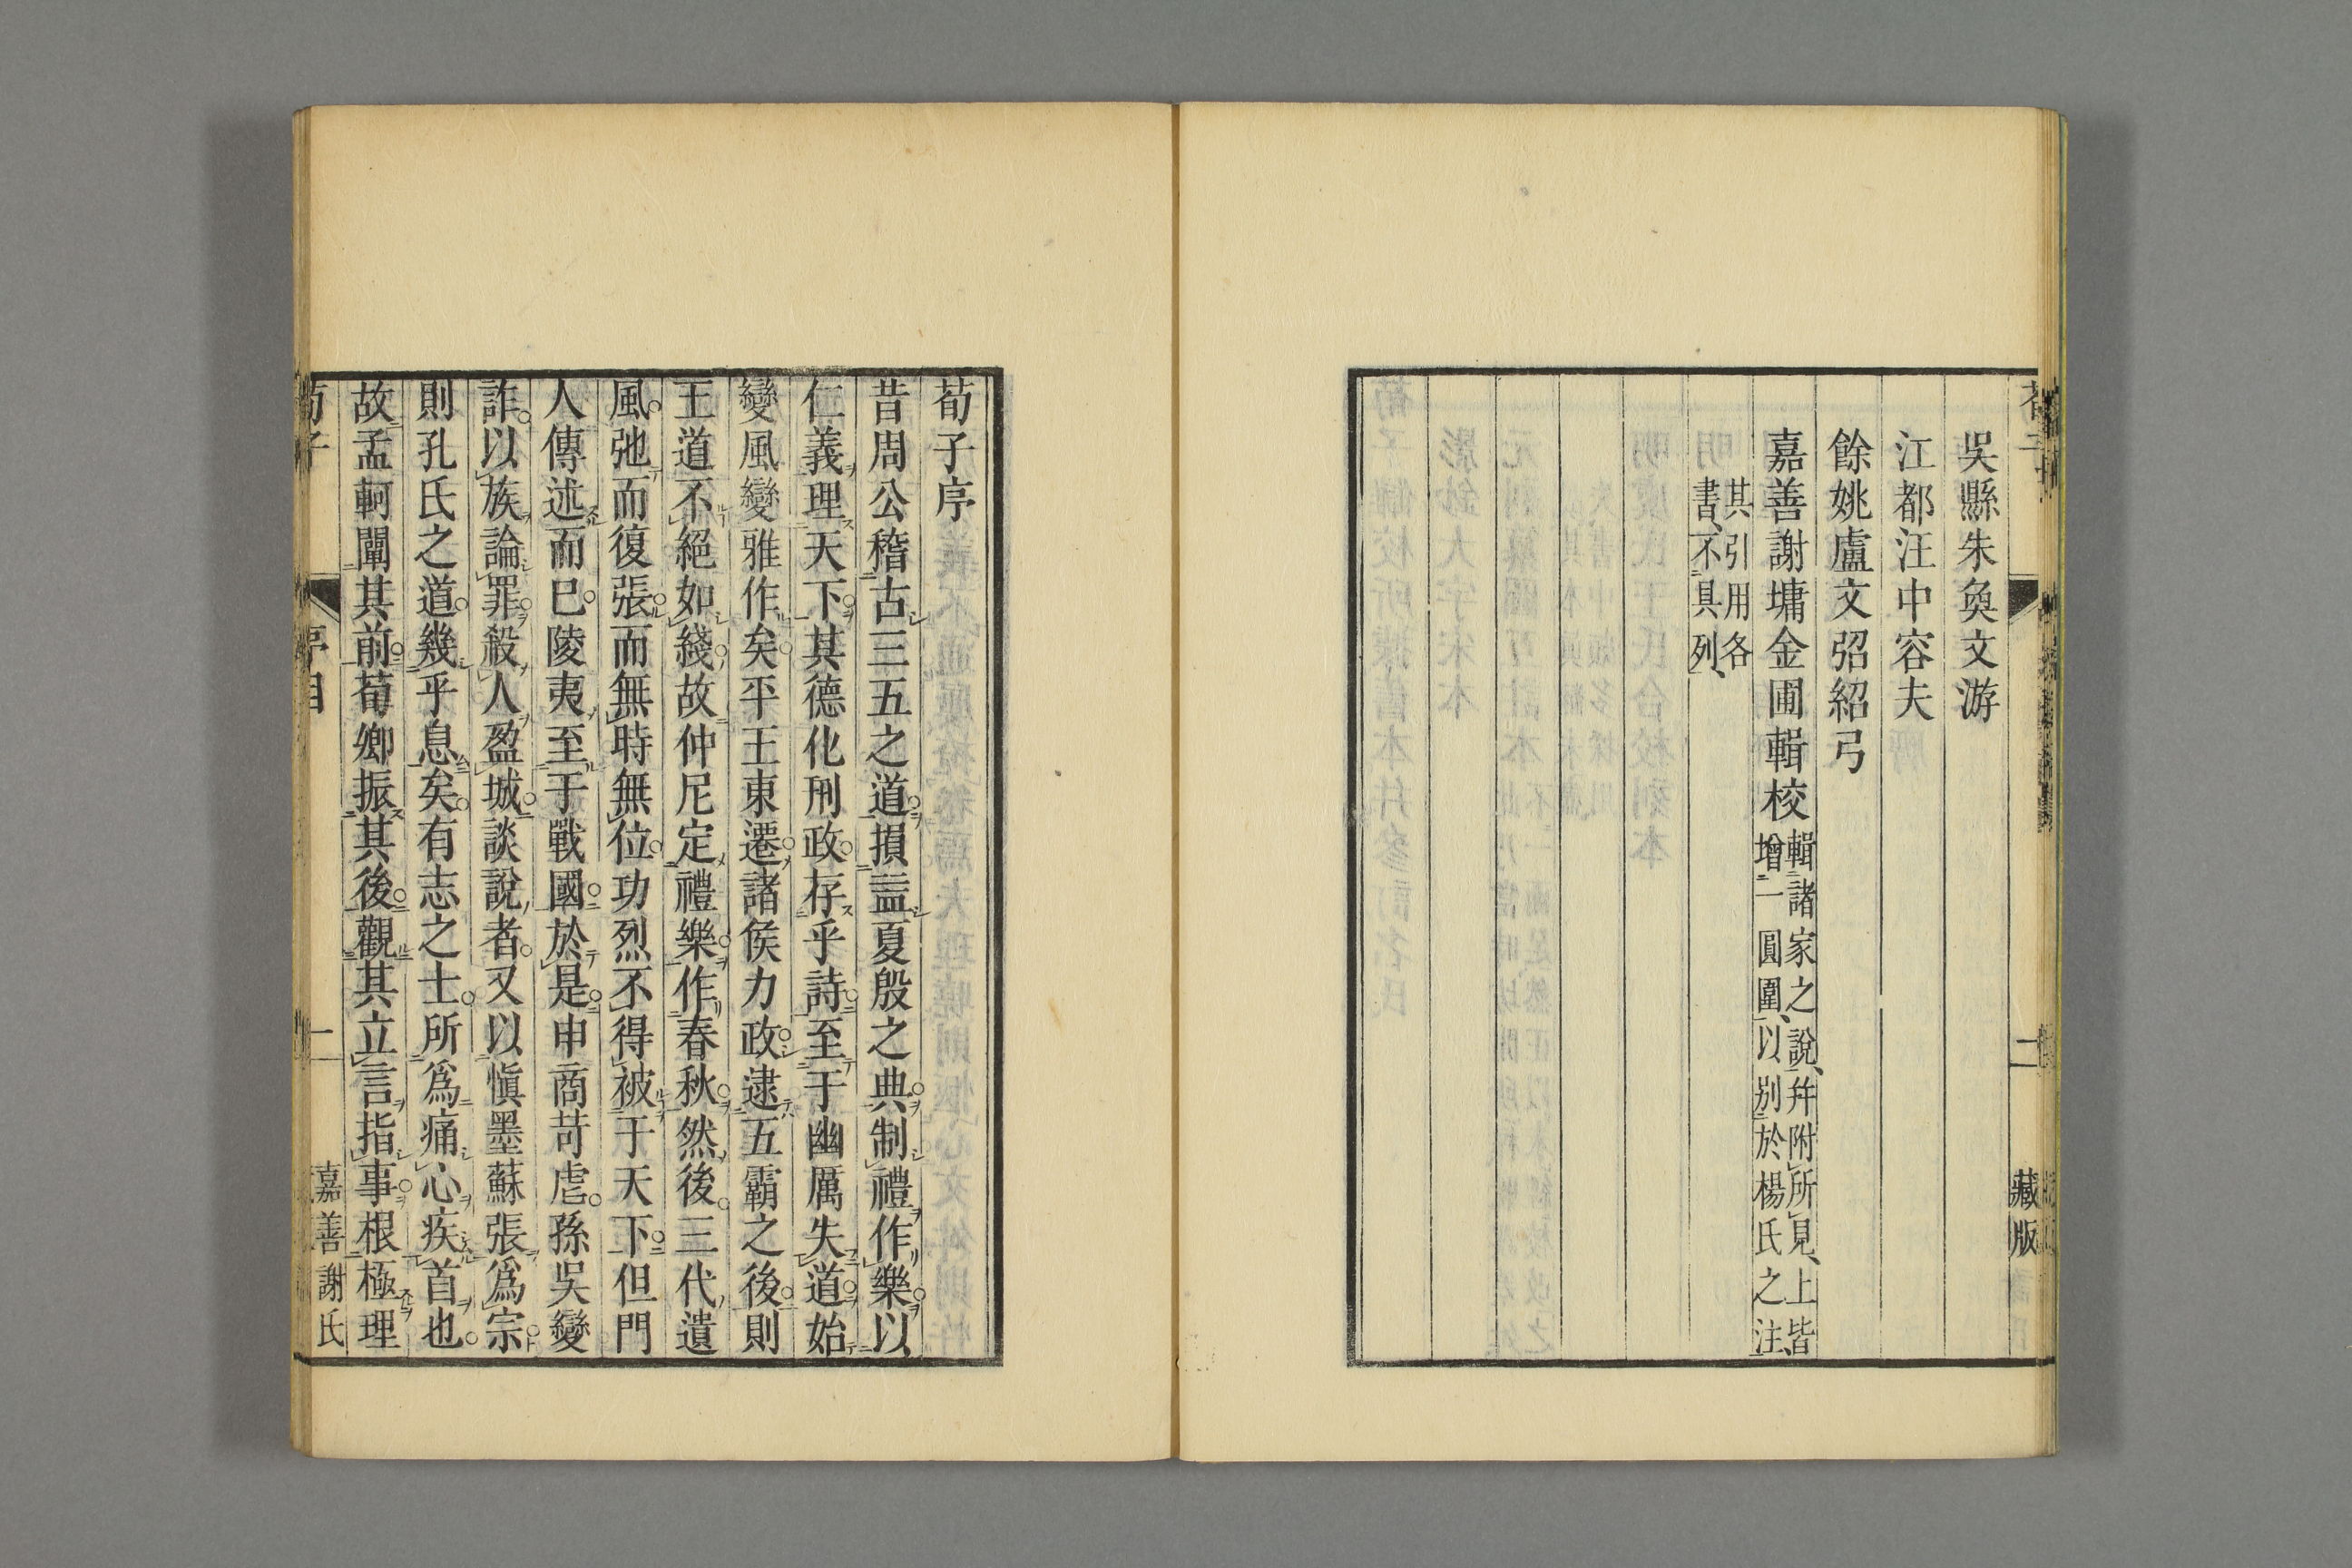 吳縣朱奐文游
江都汪中容夫
餘姚盧文弨紹弓
嘉善謝墉金圃輯校
輯諸家之說、幷附所見、上皆
增一圓圍、以別於楊氏之注、
其引用各
書、不具列、
二
藏版
荀子序
昔周公稽古三五之道損益夏殷之典制禮作樂以
仁義理天下其德化刑政存乎詩至于幽厲失道始
變風變雅作矣平王東遷諸侯力政逮五霸之後則
王道不絕如綫故仲尼定禮樂作春秋然後三代遺
風弛而復張而無時無位功烈不得被于天下但門
人傳述而已陵夷至于戰國於是申商苛虐孫吳變
詐以族論罪殺人盈城談說者又以愼墨蘇張爲宗
則孔氏之道幾乎息矣有志之士所爲痛心疾首也
故孟軻闡其前荀卿振其後觀其立言指事根極理
荀子
序目
一
嘉善謝氏